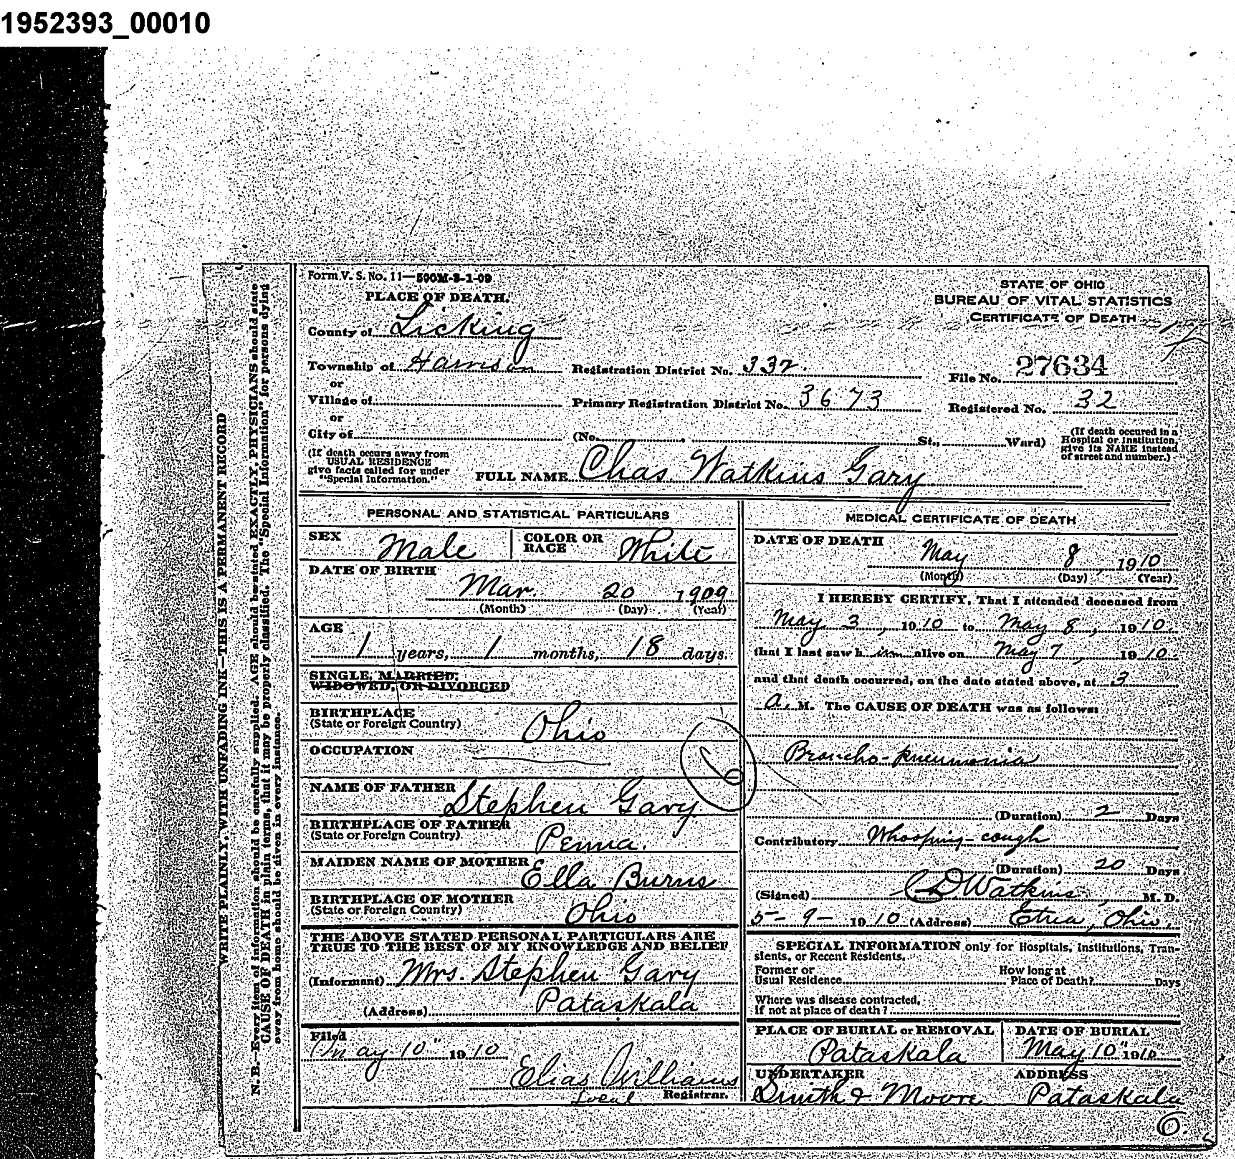 1952393_00010
Form V. S. No. 11—500M-3-1-09
PLACE OF DEATH.
County of Licking
Township of Harrison
or
Village of
or
City of
(If death occurs away from
USUAL RESIDENCE
give facts called for under
"Special Information.")
Registration District No. 332.
Primary Registration District No. 3673
(No. , St., Ward)
STATE OF OHIO
BUREAU OF VITAL STATISTICS
CERTIFICATE OF DEATH
File No. 27634
Registered No. 32
(If death occured in a
Hospital or Institution,
give its NAME instead
of street and number.)
FULL NAME Chas Watkins Gary
WRITE PLAINLY, WITH UNFADING INK—THIS IS A PERMANENT RECORD
N. B.—Every item of information should be carefully supplied. AGE should be stated EXACTLY, PHYSICIANS should state
CAUSE OF DEATH in plain terms, that it may be properly classified. The "Special Information" for persons dying
away from home should be given in every instance.
PERSONAL AND STATISTICAL PARTICULARS
SEX Male
COLOR OR
RACE White
DATE OF BIRTH
Mar. 20 1909
(Month) (Day) (Year)
AGE
1 years, 1 months, 18 days.
SINGLE, MARRIED,
WIDOWED, OR DIVORCED
BIRTHPLACE
(State or Foreign Country) Ohio
OCCUPATION
NAME OF FATHER Stephen Gary
BIRTHPLACE OF FATHER
(State or Foreign Country) Penna.
MAIDEN NAME OF MOTHER Ella Burns
BIRTHPLACE OF MOTHER
(State or Foreign Country) Ohio
THE ABOVE STATED PERSONAL PARTICULARS ARE
TRUE TO THE BEST OF MY KNOWLEDGE AND BELIEF
(Informant) Mrs. Stephen Gary
(Address) Pataskala
Filed
May 10" 1910
Elias Williams
Local Registrar.
MEDICAL CERTIFICATE OF DEATH
DATE OF DEATH
May 8, 1910
(Month) (Day) (Year)
I HEREBY CERTIFY, That I attended deceased from
May 3, 1910 to May 8, 1910
that I last saw him alive on May 7, 1910
and that death occurred, on the date stated above, at 3
a. M. The CAUSE OF DEATH was as follows:
Broncho-pneumonia
(Duration) 2 Days
Contributory Whooping-cough
(Duration) 20 Days
(Signed) C D Watkins, M. D.
5-9-1910 (Address) Etna, Ohio.
SPECIAL INFORMATION only for Hospitals, Institutions, Tran-
sients, or Recent Residents.
Former or
Usual Residence
How long at
Place of Death? Days
Where was disease contracted,
If not at place of death?
PLACE OF BURIAL or REMOVAL
Pataskala
DATE OF BURIAL
May 10" 1910
UNDERTAKER
Smith & Moore
ADDRESS
Pataskala